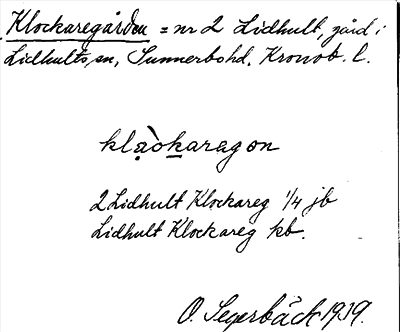 Klockaregården = nr 2 Lidhult, gård i
Lidhults sn, Sunnerbo hd, Kronob. l.
klạòk̲aragon
2 Lidhult Klockareg 1/4 jb
Lidhult Klockareg kb.
O. Segerbäck 1919.